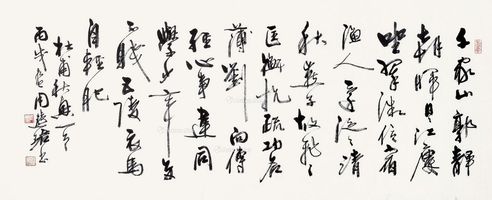 千家山郭靜
朝暉日日江廔
坐翠微信宿
漁人還泛泛清
秋燕子故飛飛
匡衡抗疏功名
薄劉向傳
經心事違同
學少年多
不賤五陵衣馬
自輕肥
杜甫秋興一章
丙戌周慧珺書